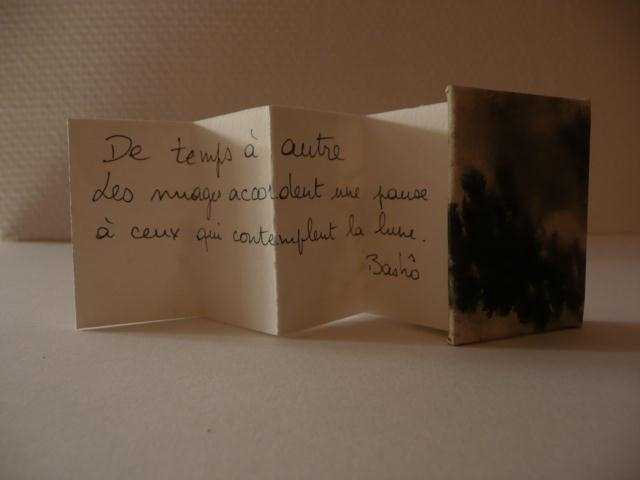 De temps à autre
Les nuages accordent une pause
à ceux qui contemplent la lune.
Bashô